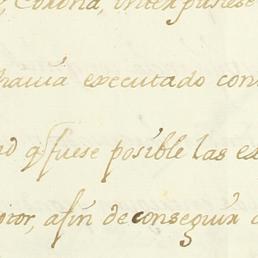 Corona, interpusiese
havia executado con
q fuese posible las ex
afin de conseguir